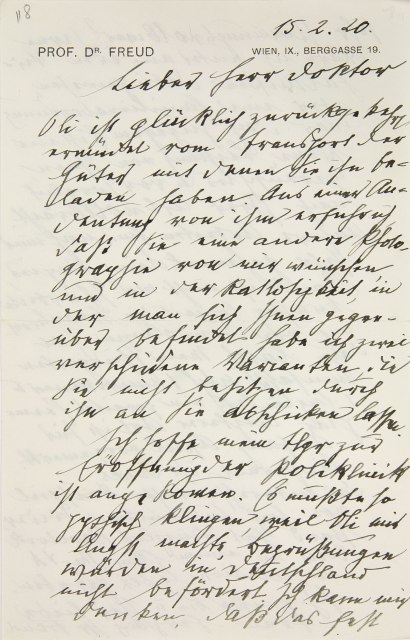 118
15.2.20.
PROF. DR. FREUD WIEN, IX., BERGGASSE 19.
Lieber Herr Doktor
Oli ist glücklich zurückgekehrt
ermüdet vom Transport der
Güter mit denen Sie ihn be-
laden haben. Aus einer An-
deutung von ihm erfuhr ich
daß Sie eine andere Photo-
graphie von mir wünschen,
und in der Ratlosigkeit, in
der man sich Ihnen gegen-
über befindet habe ich zwei
verschiedene Varianten, die
Sie nicht besitzen durch
ihn an Sie abschicken lassen.
Ich hoffe mein Tlgr zur
Eröffnung der Poliklinik
ist angekomen. Es mußte so
klingen, weil Oli mir
Angst machte, Begrüßungen
würden in Deutschland
nicht befördert. Ich kann mir
denken, daß das Fest